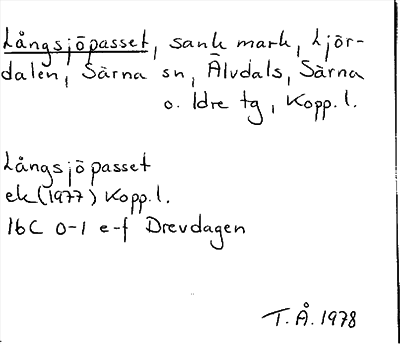 Långsjöpasset, sank mark, Ljör-
dalen, Särna sn, Älvdals, Särna
o. Idre tg, Kopp. l.
Långsjöpasset
ek (1977) Kopp. l.
16C 0-1 e-f Drevdagen
T.Å. 1978